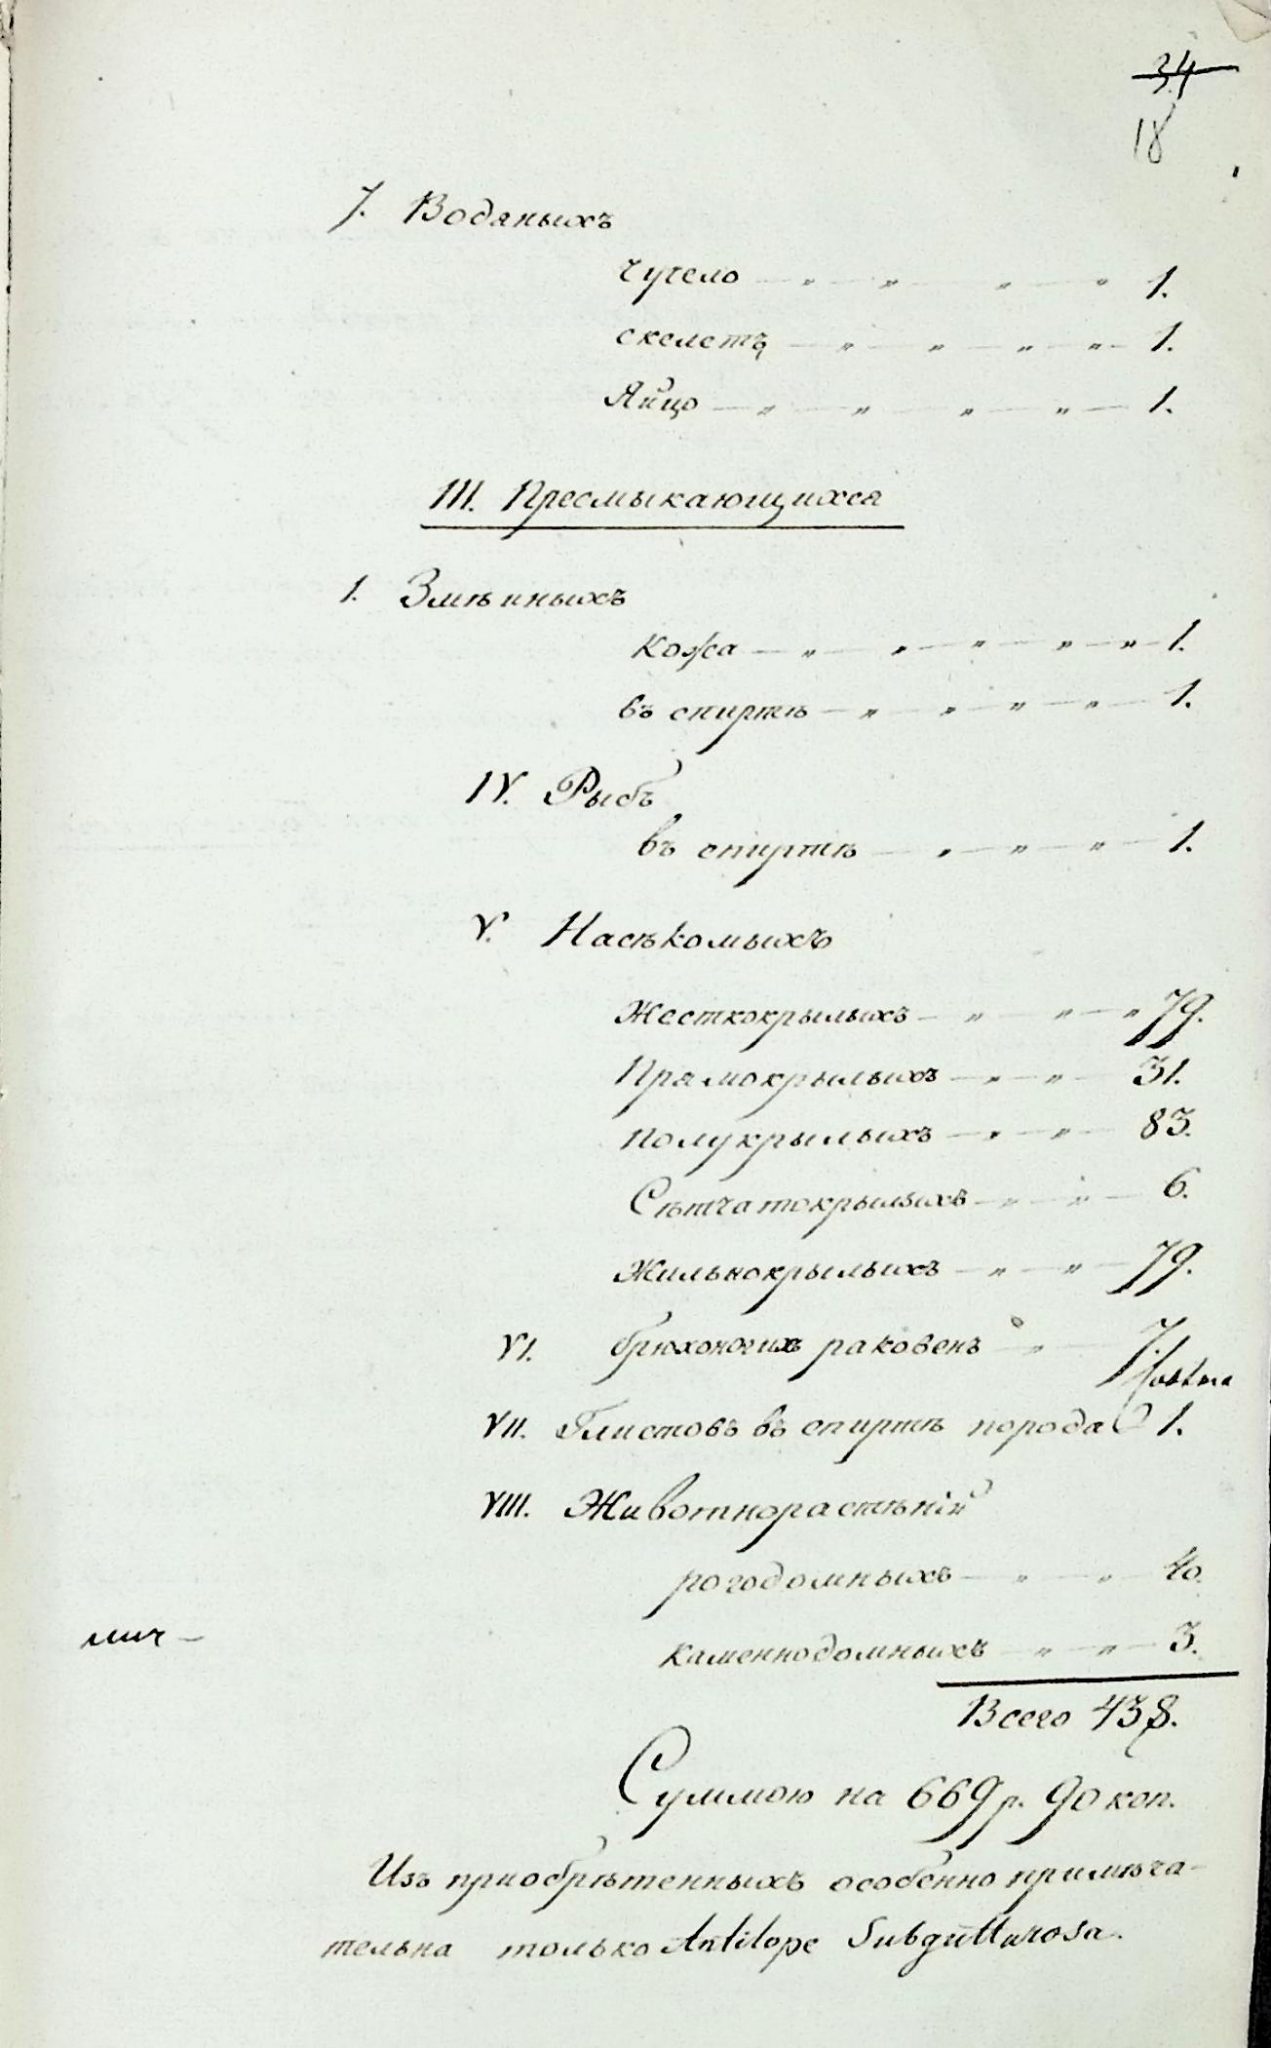 34
18
7. Водяныхъ
Чучело — „ — „ — „ — „ 1.
скелетъ — „ — „ — „ — „ — 1.
Яйцо — „ — „ — „ — „ — 1.
III. Пресмыкающихся
1. Змѣиныхъ
кожа — „ — „ — „ — „ — „ — 1.
въ спиртѣ — „ — „ — „ — „ — 1.
IV. Рыбъ
въ спиртѣ — „ — „ — „ — 1.
V. Насѣкомыхъ
Жесткокрылыхъ — „ — „ — „ 79.
Прямокрылыхъ — „ — „ — 31.
Полукрылыхъ — „ — „ — 83.
Сѣтчатокрылыхъ — „ — „ — 6.
Жильнокрылыхъ — „ — „ — 79.
VI. брюхоногихъ раковенъ — „ — 7.
VII. Глистовъ въ спиртѣ порода 1.
VIII. Животнорастѣній
рогодомныхъ — „ — „ — 40.
каменнодомныхъ — „ — „ — 3.
Всего 438.
Суммою на 669 р. 90 коп.
Изъ приобрѣтенныхъ особенно примѣча-
тельна только Antilope Subgutturosa.